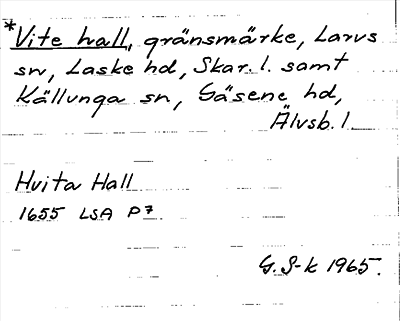 *Vite hall, gränsmärke, Larvs
sn, Laske hd, Skar. l. samt
Källunga sn, Gäsene hd,
Älvsb. l
Hvita Hall
1655 LSA P7
G. S-k 1965.